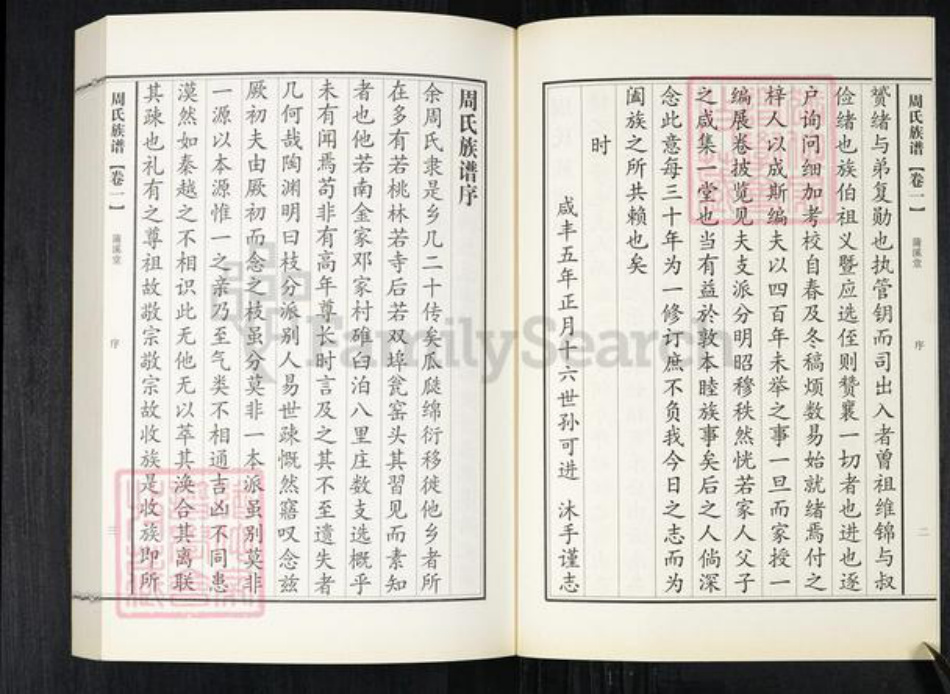 周氏族谱【卷一】 蒲溪堂 序 二
赟绪与弟复勋也执管钥而司出入者曾祖维锦与叔
俭绪也族伯祖义暨应选侄则赞襄一切者也进也逐
户询问细加考校自春及冬稿烦数易始就绪焉付之
梓人以成斯编夫以四百年未举之事一旦而家授一
编展卷披览见夫支派分明昭穆秩然恍若家人父子
之咸集一堂也当有益於敦本睦族事矣后之人倘深
念此意每三十年为一修订庶不负我今日之志而为
阖族之所共赖也矣
时
咸丰五年正月十六世孙可进 沐手谨志
周氏族谱序
余周氏隶是乡几二十传矣瓜瓞绵衍移徙他乡者所
在多有若桃林若寺后若双埠瓮窑头其习见而素知
者也他若南金家邓家村碓臼泊八里庄数支迭概乎
未有闻焉苟非有高年尊长时言及之其不至遗失者
几何哉陶渊明曰枝分派别人易世疎慨然寤叹念兹
厥初夫由厥初而念之枝虽分莫非一本派虽别莫非
一源以本源惟一之亲乃至气类不相通吉凶不同患
漠然如秦越之不相识此无他无以萃其涣合其离联
其疎也礼有之尊祖故敬宗敬宗故收族是收族即所
周氏族谱【卷一】 蒲溪堂 序 三
FamilySearch